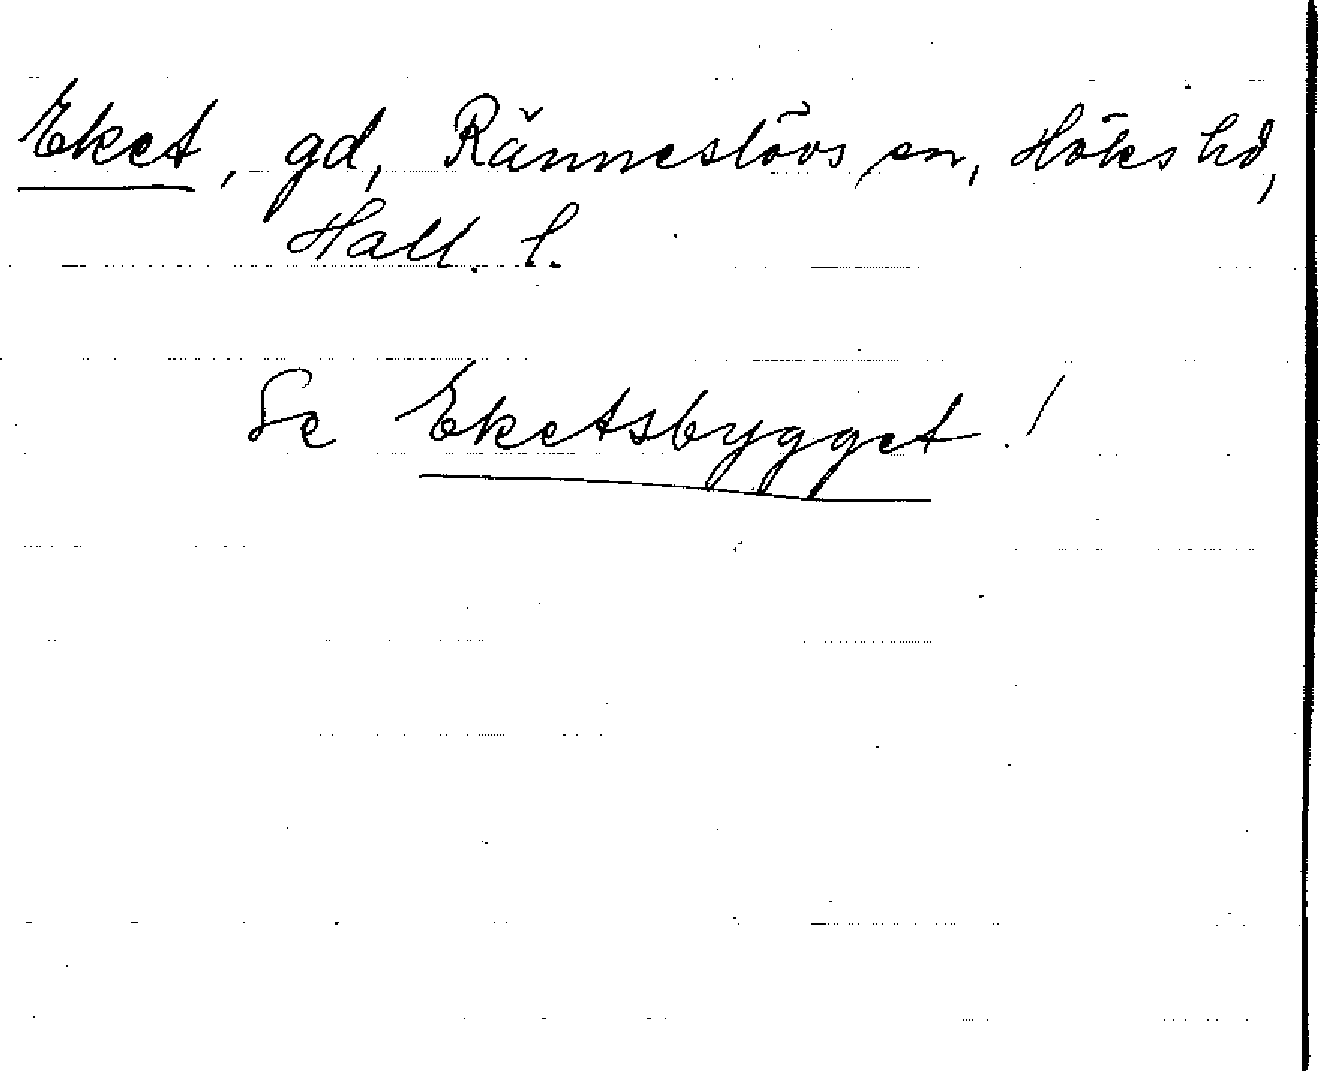 Eket, gd, Ränneslövs sn, Höks hd,
Hall. l.
Se Eketsbygget!